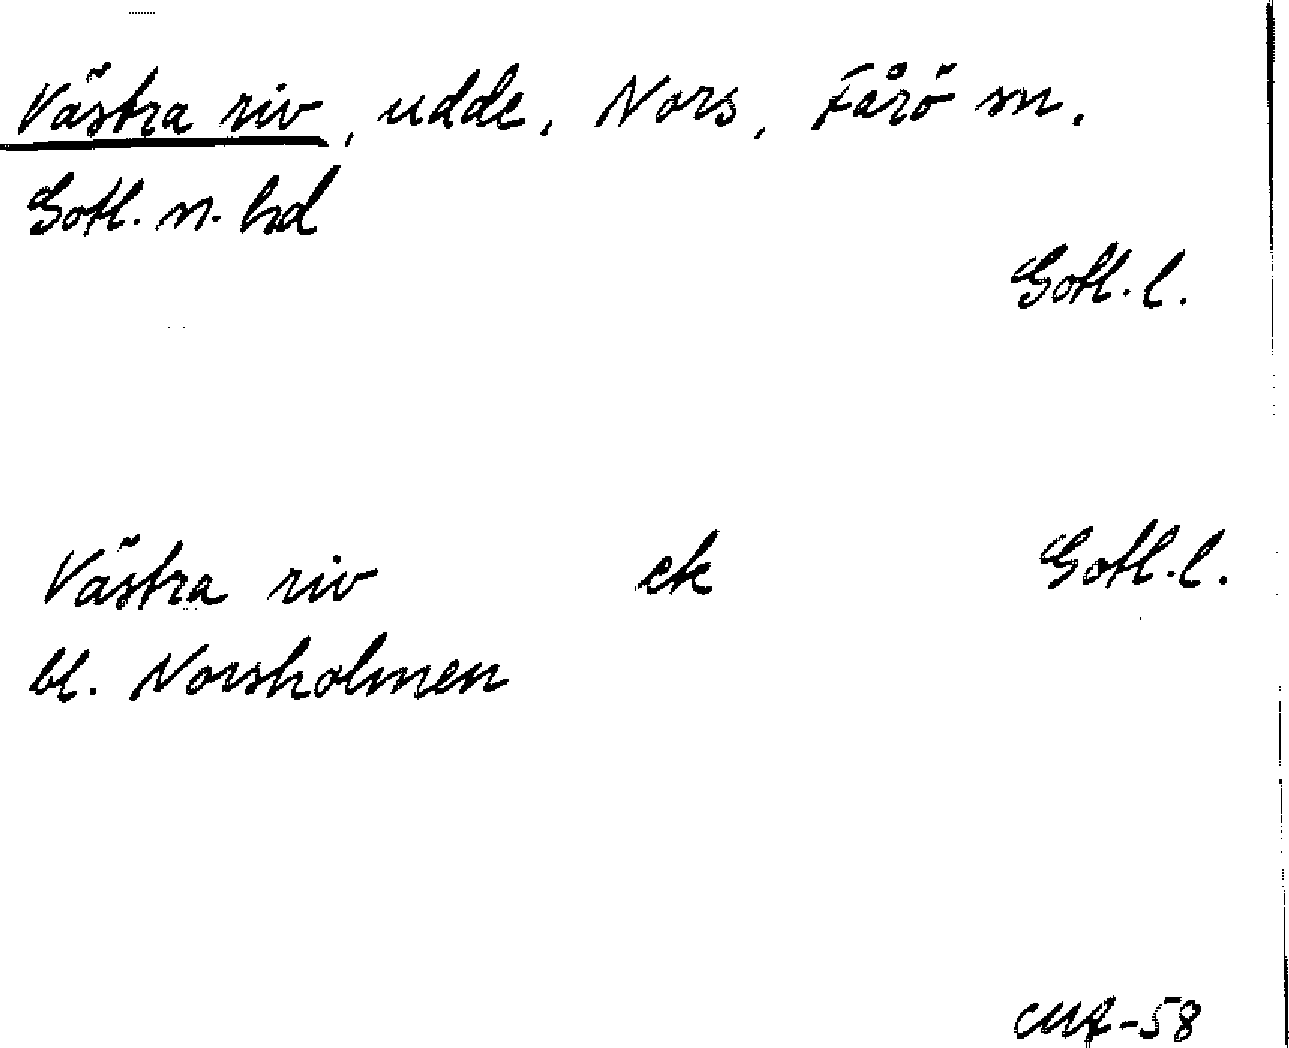 Västra riv, udde, Nors, Fårö sn.
Gotl. n. hd
Gotl. l.
Västra riv ek Gotl. l.
bl. Norsholmen
-58